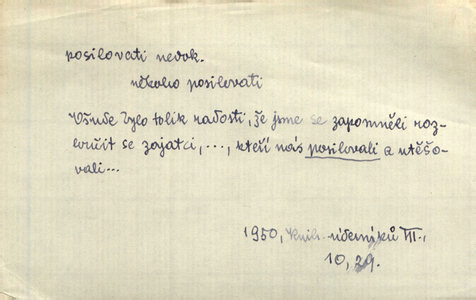 posilovati nedok.
někoho posilovati
Všude bylo tolik radosti, že jsme se zapomněli roz-
loučit se zajatci, ..., kteří nás posilovali a utěšo-
vali...
1950, Knih. úderníků III.,
10, 29.